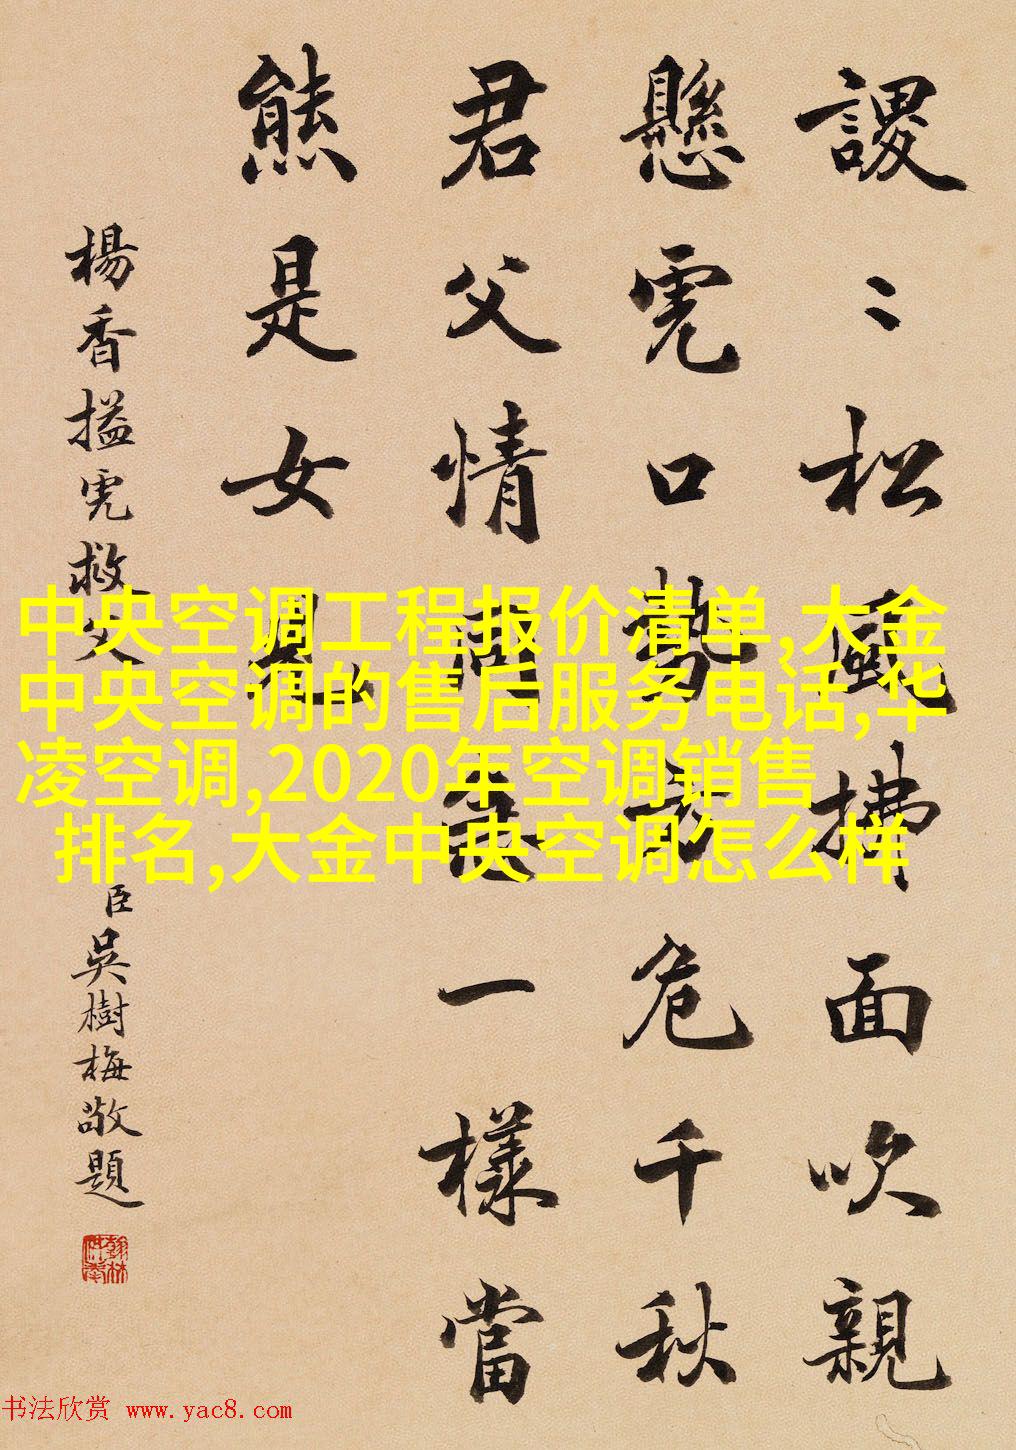 謖〻松風拂面吹親
懸虎口勢危千秋
君父情同一樣當
熊是女兒
楊香搤虎救父
臣吳樹梅敬題
翰林供奉
中央空调工程报价清单,大金
中央空调的售后服务电话,华
凌空调,2020年空调销售
排名,大金中央空调怎么样
书法欣赏 www.yac8.com